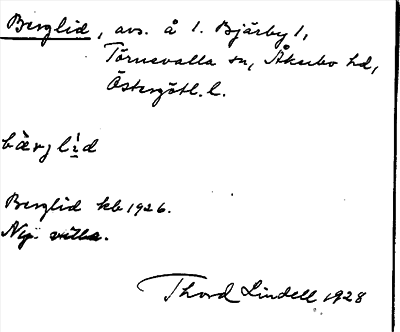 Berglid, avs. å 1. Bjärby 1,
Törnevalla sn, Åkerbo hd,
Östergötl. l.
bàrjlid
Berglid kb 1926.
Ny villa.
Thord Lindell 1928